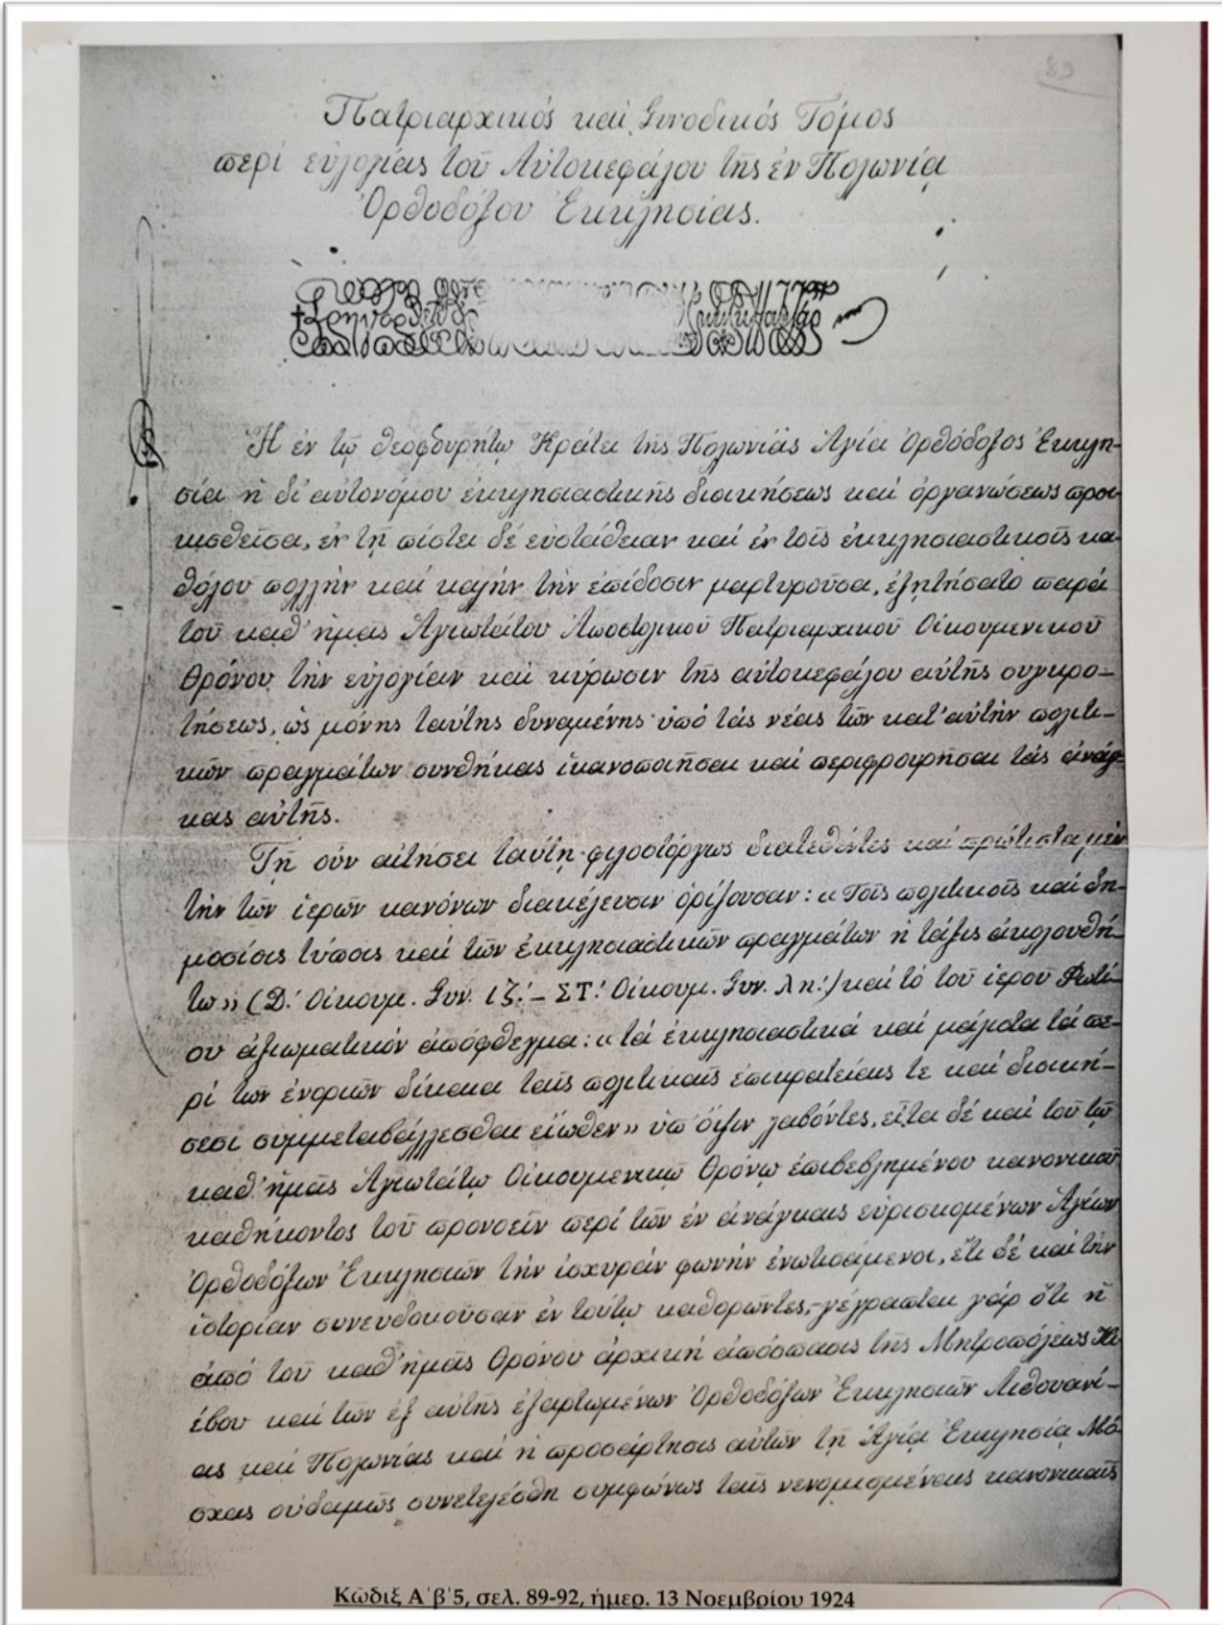 89
Πατριαρχικός καί Συνοδικός Τόμος
περί εὐλογίας τοῦ Αὐτοκεφάλου τῆς ἐν Πολωνίᾳ
Ὀρθοδόξου Ἐκκλησίας.
Ἡ ἐν τῷ θεοφρουρήτῳ Κράτει τῆς Πολωνίας Ἁγία Ὀρθόδοξος Ἐκκλη-
σία ἡ δι’ αὐτονόμου ἐκκλησιαστικῆς διοικήσεως καί ὀργανώσεως προι-
κισθεῖσα, ἐν τῇ πίστει δέ εὐστάθειαν καί ἐν τοῖς ἐκκλησιαστικοῖς κα-
θόλου πολλήν καί καλήν τήν ἐπίδοσιν μαρτυροῦσα, ἐζητήσατο παρά
τοῦ καθ’ ἡμᾶς Ἁγιωτάτου Ἀποστολικοῦ Πατριαρχικοῦ Οἰκουμενικοῦ
Θρόνου τήν εὐλογίαν καί κύρωσιν τῆς αὐτοκεφάλου αὐτῆς συγκρο-
τήσεως, ὡς μόνης ταύτης δυναμένης ὑπό τάς νέας τῶν κατ’ αὐτήν πολιτι-
κῶν πραγμάτων συνθήκας ἱκανοποιῆσαι καί περιφρουρῆσαι τάς ἀνάγ-
κας αὐτῆς.
Τῇ οὖν αἰτήσει ταύτῃ φιλοστόργως διατεθέντες καί πρώτιστα μέν
τήν τῶν ἱερῶν κανόνων διακέλευσιν ὁρίζουσαν: «Τοῖς πολιτικοῖς καί δη-
μοσίοις τύποις καί τῶν ἐκκλησιαστικῶν πραγμάτων ἡ τάξις ἀκολουθεί-
τω» (Δ.' Οἰκουμ. Συν. ιζ.' – ΣΤ.' Οἰκουμ. Συν. λη.') καί τό τοῦ ἱεροῦ Φωτί-
ου ἀξιωματικόν ἀπόφθεγμα: «τά ἐκκλησιαστικά καί μάλιστα τά πε-
ρί τῶν ἐνοριῶν δίκαια ταῖς πολιτικαῖς ἐπικρατείαις τε καί διοική-
σεσι συμμεταβάλλεσθαι εἴωθεν» ὑπ’ ὄψιν λαβόντες, εἶτα δέ καί τοῦ τῷ
καθ’ ἡμᾶς Ἁγιωτάτῳ Οἰκουμενικῷ Θρόνῳ ἐπιβεβλημένου κανονικοῦ
καθήκοντος τοῦ προνοεῖν περί τῶν ἐν ἀνάγκαις εὑρισκομένων Ἁγίων
Ὀρθοδόξων Ἐκκλησιῶν τήν ἰσχυράν φωνήν ἐνωτισάμενοι, ἔτι δέ καί τήν
ἱστορίαν συνευδοκοῦσαν ἐν τούτῳ καθορῶντες,-γέγραπται γάρ ὅτι ἡ
ἀπό τοῦ καθ’ ἡμᾶς Θρόνου ἀρχική ἀπόσπασις τῆς Μητροπόλεως Κι-
έβου καί τῶν ἐξ αὐτῆς ἐξαρτωμένων Ὀρθοδόξων Ἐκκλησιῶν Λιθουανί-
ας καί Πολωνίας καί ἡ προσάρτησις αὐτῶν τῇ Ἁγίᾳ Ἐκκλησίᾳ Μό-
σχας οὐδαμῶς συνετελέσθη συμφώνως τοῖς νενομισμένοις κανονικοῖς
Κῶδιξ Α΄β΄5, σελ. 89-92, ἡμερ. 13 Νοεμβρίου 1924